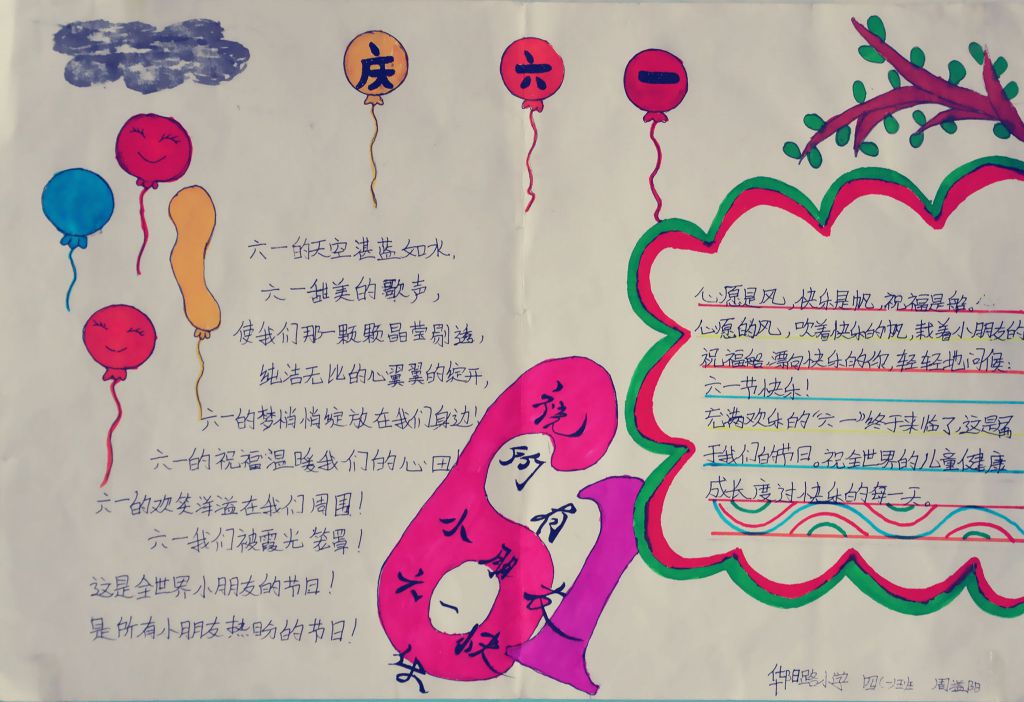 庆六一
六一的天空湛蓝如水,
六一甜美的歌声,
使我们那一颗颗晶莹剔透,
纯洁无比的心翼翼的绽开,
六一的梦悄悄绽放在我们身边!
六一的祝福温暖我们的心田!
六一的欢笑洋溢在我们周围!
六一我们被霞光笼罩!
这是全世界小朋友的节日!
是所有小朋友热盼的节日!
祝所有小朋友六一快乐
心愿是风,快乐是帆,祝福是船。
心愿的风,吹着快乐的帆,载着小朋友的
祝福船漂向快乐的你,轻轻地问候:
六一节快乐!
充满欢乐的“六一”终于来临了,这是属
于我们的节日。祝全世界的儿童健康
成长度过快乐的每一天。
路小学 四(一)班 周益阳